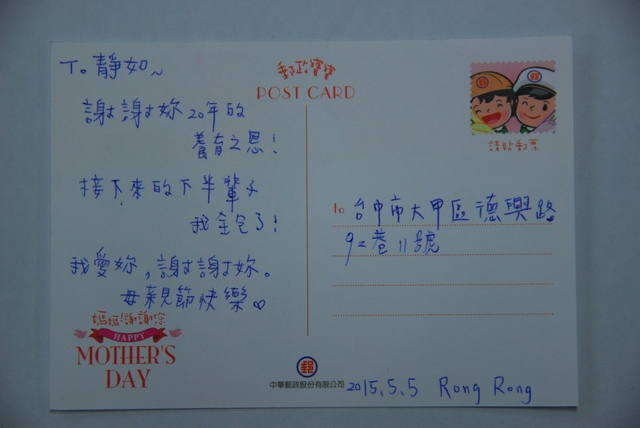 To 靜如~
謝謝妳20年的
養育之恩!
接下來的下半輩子
我全包了!
我愛妳,謝謝妳。
母親節快樂
媽媽!謝謝您
HAPPY
MOTHER'S
DAY
郵政寶寶
POST CARD
郵
請貼郵票
To 台中市大甲區德興路
92巷11號
郵
中華郵政股份有限公司
2015.5.5 Rong Rong